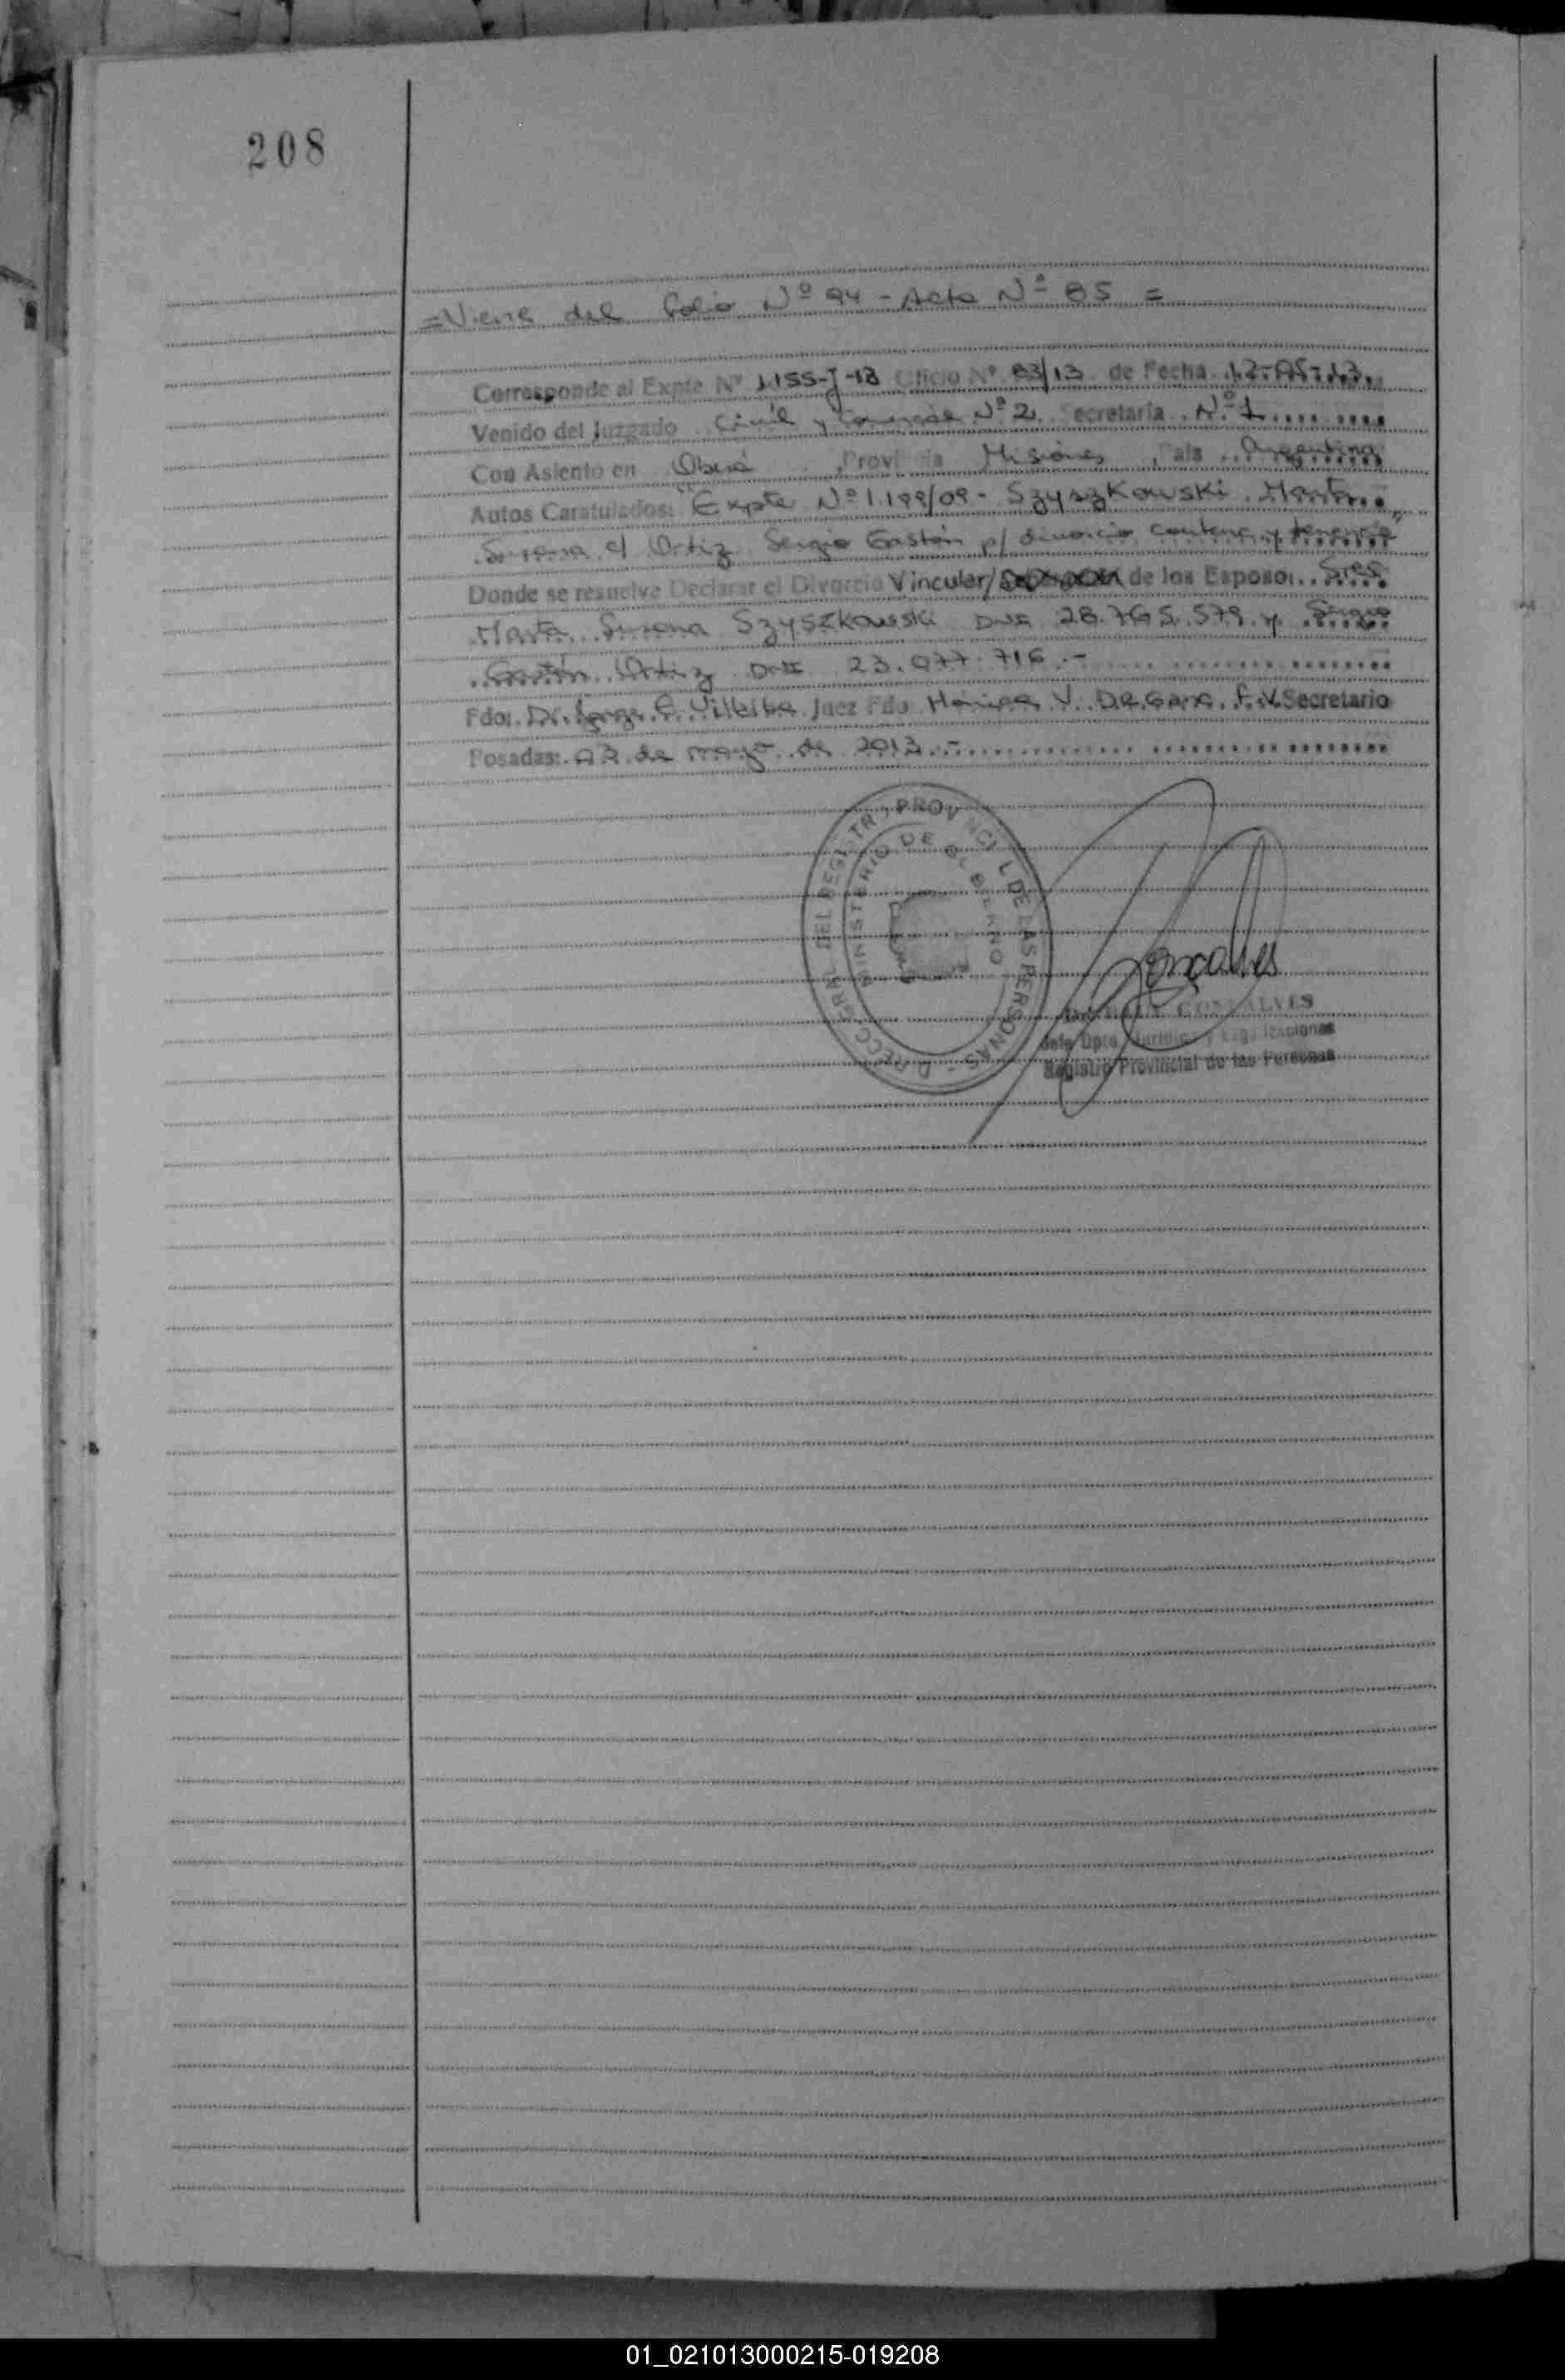 208
= Viene del folio Nº 94 - Acta Nº 85 =
Corresponde al Expte Nº 1155-J-13 Oficio Nº 83/13 de Fecha
Venido del Juzgado Civil y Comercial Nº 2. Secretaria Nº 1
Con Asiento en Oberá, Provincia Misiones, Pais Argentina
Autos Caratulados: "Expte Nº 1.199/09 - Szyszkowski, Marta
Susana c/ Ortiz Sergio Gastón p/ divorcio contenc y tenencia"
Donde se resuelve Declarar el Divorcio Vincular/ de los Esposos Sres
Marta Susana Szyszkowski DNI 28.765.579 y Sergio
Gastón Ortiz DNI 23.077.716.-
Fdo: Dr. Jorge E. Villalba Juez Fdo Mónica V. De Secretario
Posadas: de mayo de 2013.-
DIRECC. GRAL. DEL REGISTRO PROVINCIAL DE LAS PERSONAS -
MINISTERIO DE GOBIERNO
Gonçalves
GONSALVES
Jefe Dpto. Jurídico y Legalizaciones
Registro Provincial de las Personas
01_021013000215-019208